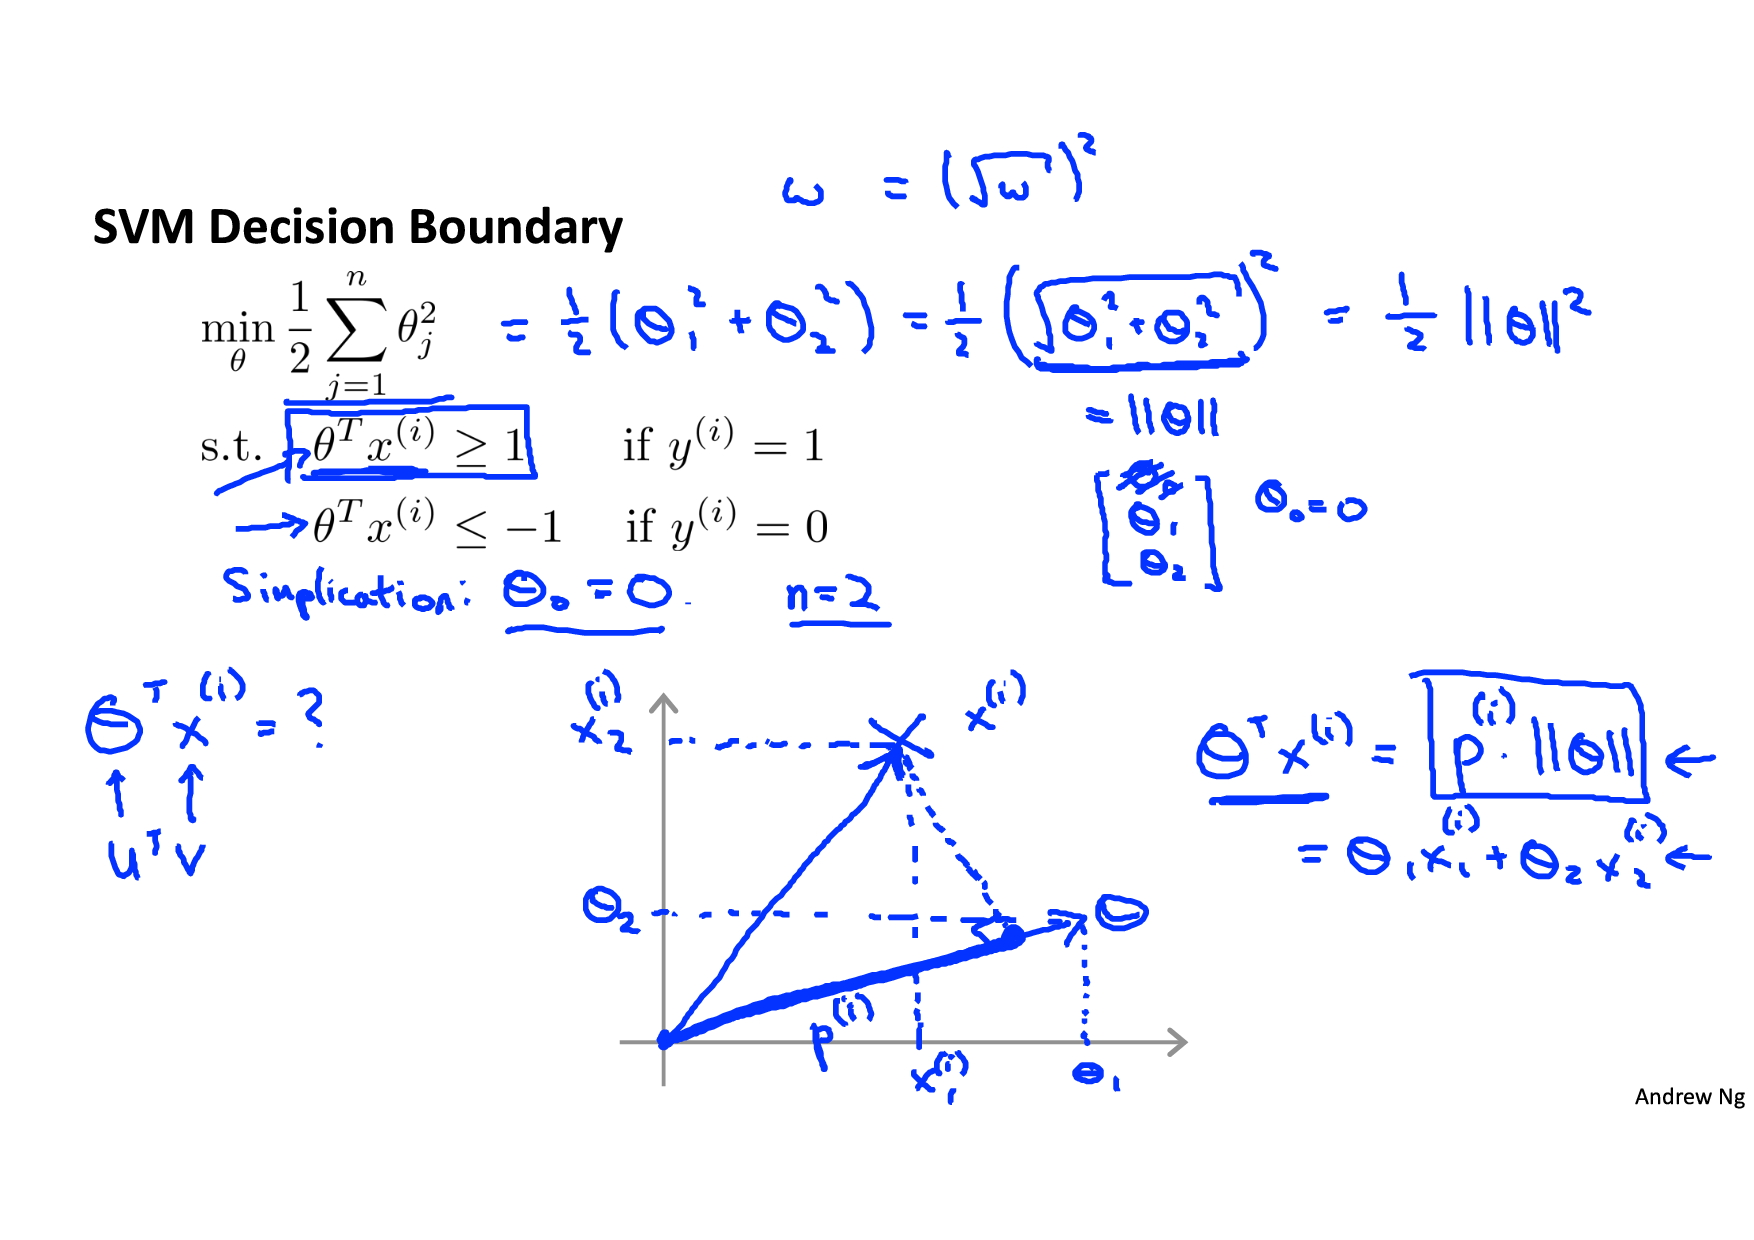 ω = (√ω)²
SVM Decision Boundary
min_θ 1/2 ∑_{j=1}^{n} θ_j² = 1/2 (θ₁² + θ₂²) = 1/2 (√(θ₁² + θ₂²))² = 1/2 ||θ||²
= ||θ||
s.t. θᵀx⁽ⁱ⁾ ≥ 1 if y⁽ⁱ⁾ = 1
θᵀx⁽ⁱ⁾ ≤ −1 if y⁽ⁱ⁾ = 0
[θ₁ θ₂] θ₀ = 0
Simplication: θ₀ = 0. n = 2
θᵀx⁽ⁱ⁾ = ?
uᵀv
x₂⁽ⁱ⁾
x⁽ⁱ⁾
θ₂
θ
p⁽ⁱ⁾
x₁⁽ⁱ⁾
θ₁
θᵀx⁽ⁱ⁾ = p⁽ⁱ⁾ · ||θ|| ←
= θ₁x₁⁽ⁱ⁾ + θ₂x₂⁽ⁱ⁾ ←
Andrew Ng